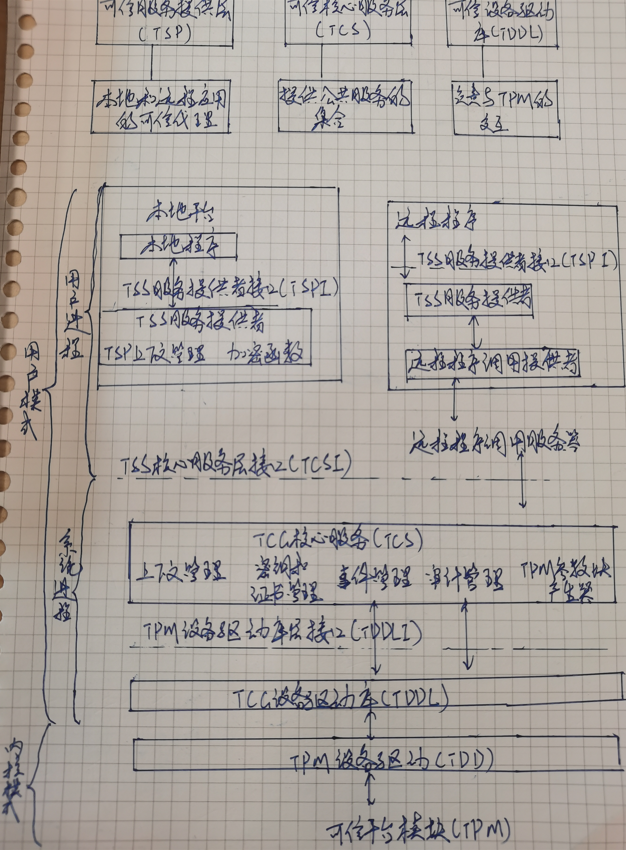 可信服务提供层
(TSP)
可信核心服务层
(TCS)
可信设备驱动
库(TDDL)
本地和远程应用
的可信代理
提供公共服务的
集合
负责与TPM的
交互
本地平台
本地程序
TSS服务提供者接口(TSPI)
TSS服务提供者
TSP上下文管理 加密函数
远程程序
TSS服务提供者接口(TSPI)
TSS服务提供者
远程程序调用提供者
远程程序调用服务器
用户进程
用户模式
TSS核心服务层接口(TCSI)
TCG核心服务(TCS)
上下文管理
密钥和
证书管理
事件管理
审计管理
TPM参数块
产生器
系统进程
TPM设备驱动库层接口(TDDLI)
TCG设备驱动库(TDDL)
TPM设备驱动(TDD)
内核模式
可信平台模块(TPM)